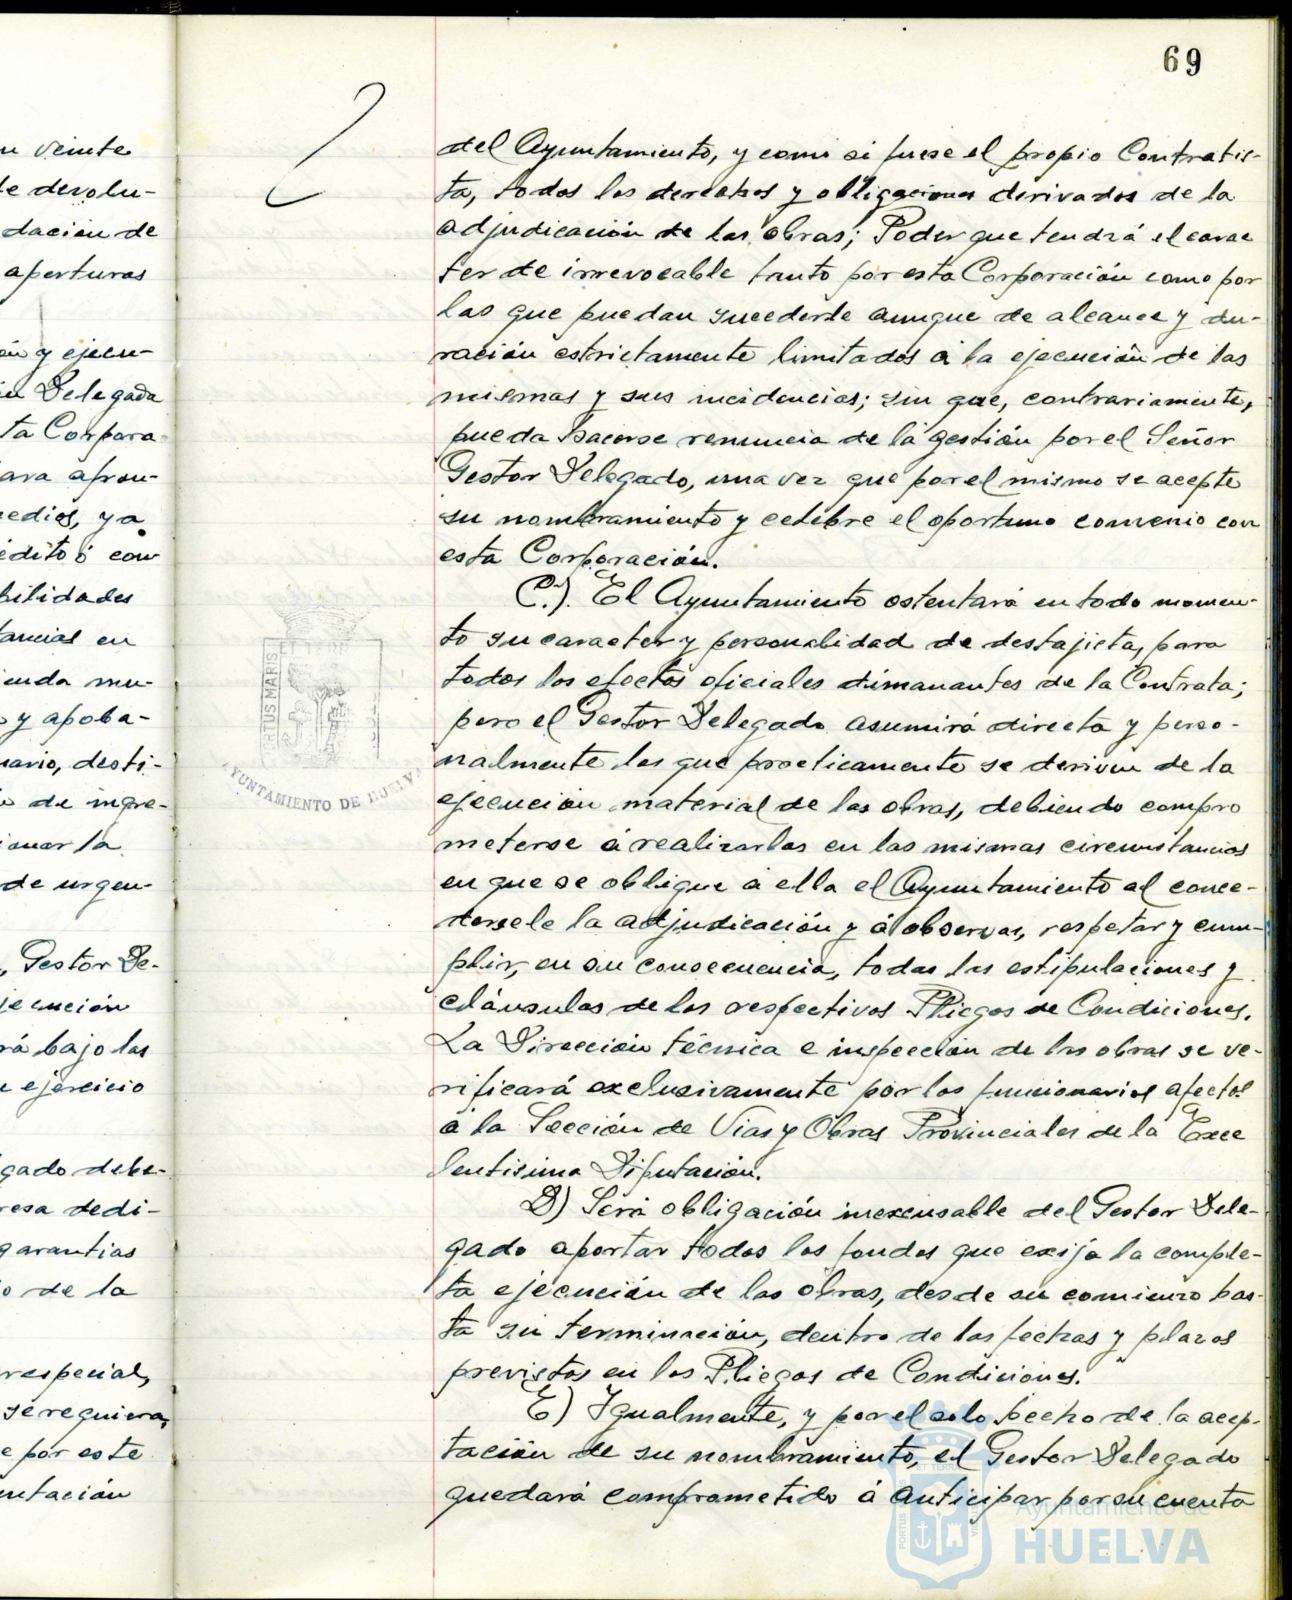 69
n veinte
te devolu-
dación de
aperturas
ón y ejecu-
ón Delegada
ta Corpora-
para afron-
medios, ya
édito ó con
bilidades
tancias en
ienda mu-
o y apoba-
nario, desti-
o de ingre-
ionar la
de urgen-
, Gestor De-
jecución
rá bajo las
e ejercicio
gado debe-
resa dedi-
garantias
o de la
respecial,
se requiera,
e por este
entación
del Ayuntamiento, y como si fuese el propio Contratis-
ta, todos los derechos y obligaciones derivados de la
adjudicación de las obras; Poder que tendrá el carac
ter de irrevocable tanto por esta Corporación como por
las que puedan sucederle aunque de alcance y du-
ración estrictamente limitados á la ejecución de las
mismas y sus incidencias; sin que, contrariamente,
pueda hacerse renuncia de la gestión por el Señor
Gestor Delegado, una vez que por el mismo se acepte
su nombramiento y celebre el oportuno convenio con
esta Corporación.
C.) El Ayuntamiento ostentará en todo momen-
to su caracter y personalidad de destajista, para
todos los efectos oficiales dimanantes de la Contrata;
pero el Gestor Delegado asumirá directa y perso-
nalmente los que practicamente se deriven de la
ejecución material de las obras, debiendo compro
meterse á realizarlas en las mismas circunstancias
en que se obligue á ella el Ayuntamiento al conce-
dersele la adjudicación y á observar, respetar y cum-
plir, en su consecuencia, todas las estipulaciones y
cláusulas de los respectivos Pliegos de Condiciones.
La Dirección técnica e inspección de las obras se ve-
rificará exclusivamente por los funcionarios afectos
á la Sección de Vias y Obras Provinciales de la Exce
lentisima Diputación.
D) Será obligación inexcusable del Gestor Dele-
gado aportar todos los fondos que exija la comple-
ta ejecución de las obras, desde su comienzo has-
ta su terminación, dentro de las fechas y plazos
previstos en los Pliegos de Condiciones.
E) Igualmente, y por el solo hecho de la acep-
tación de su nombramiento, el Gestor Delegado
quedará comprometido á anticipar por su cuenta
PORTUS MARIS ET TERR
AYUNTAMIENTO DE HUELVA
Ayuntamiento de
HUELVA